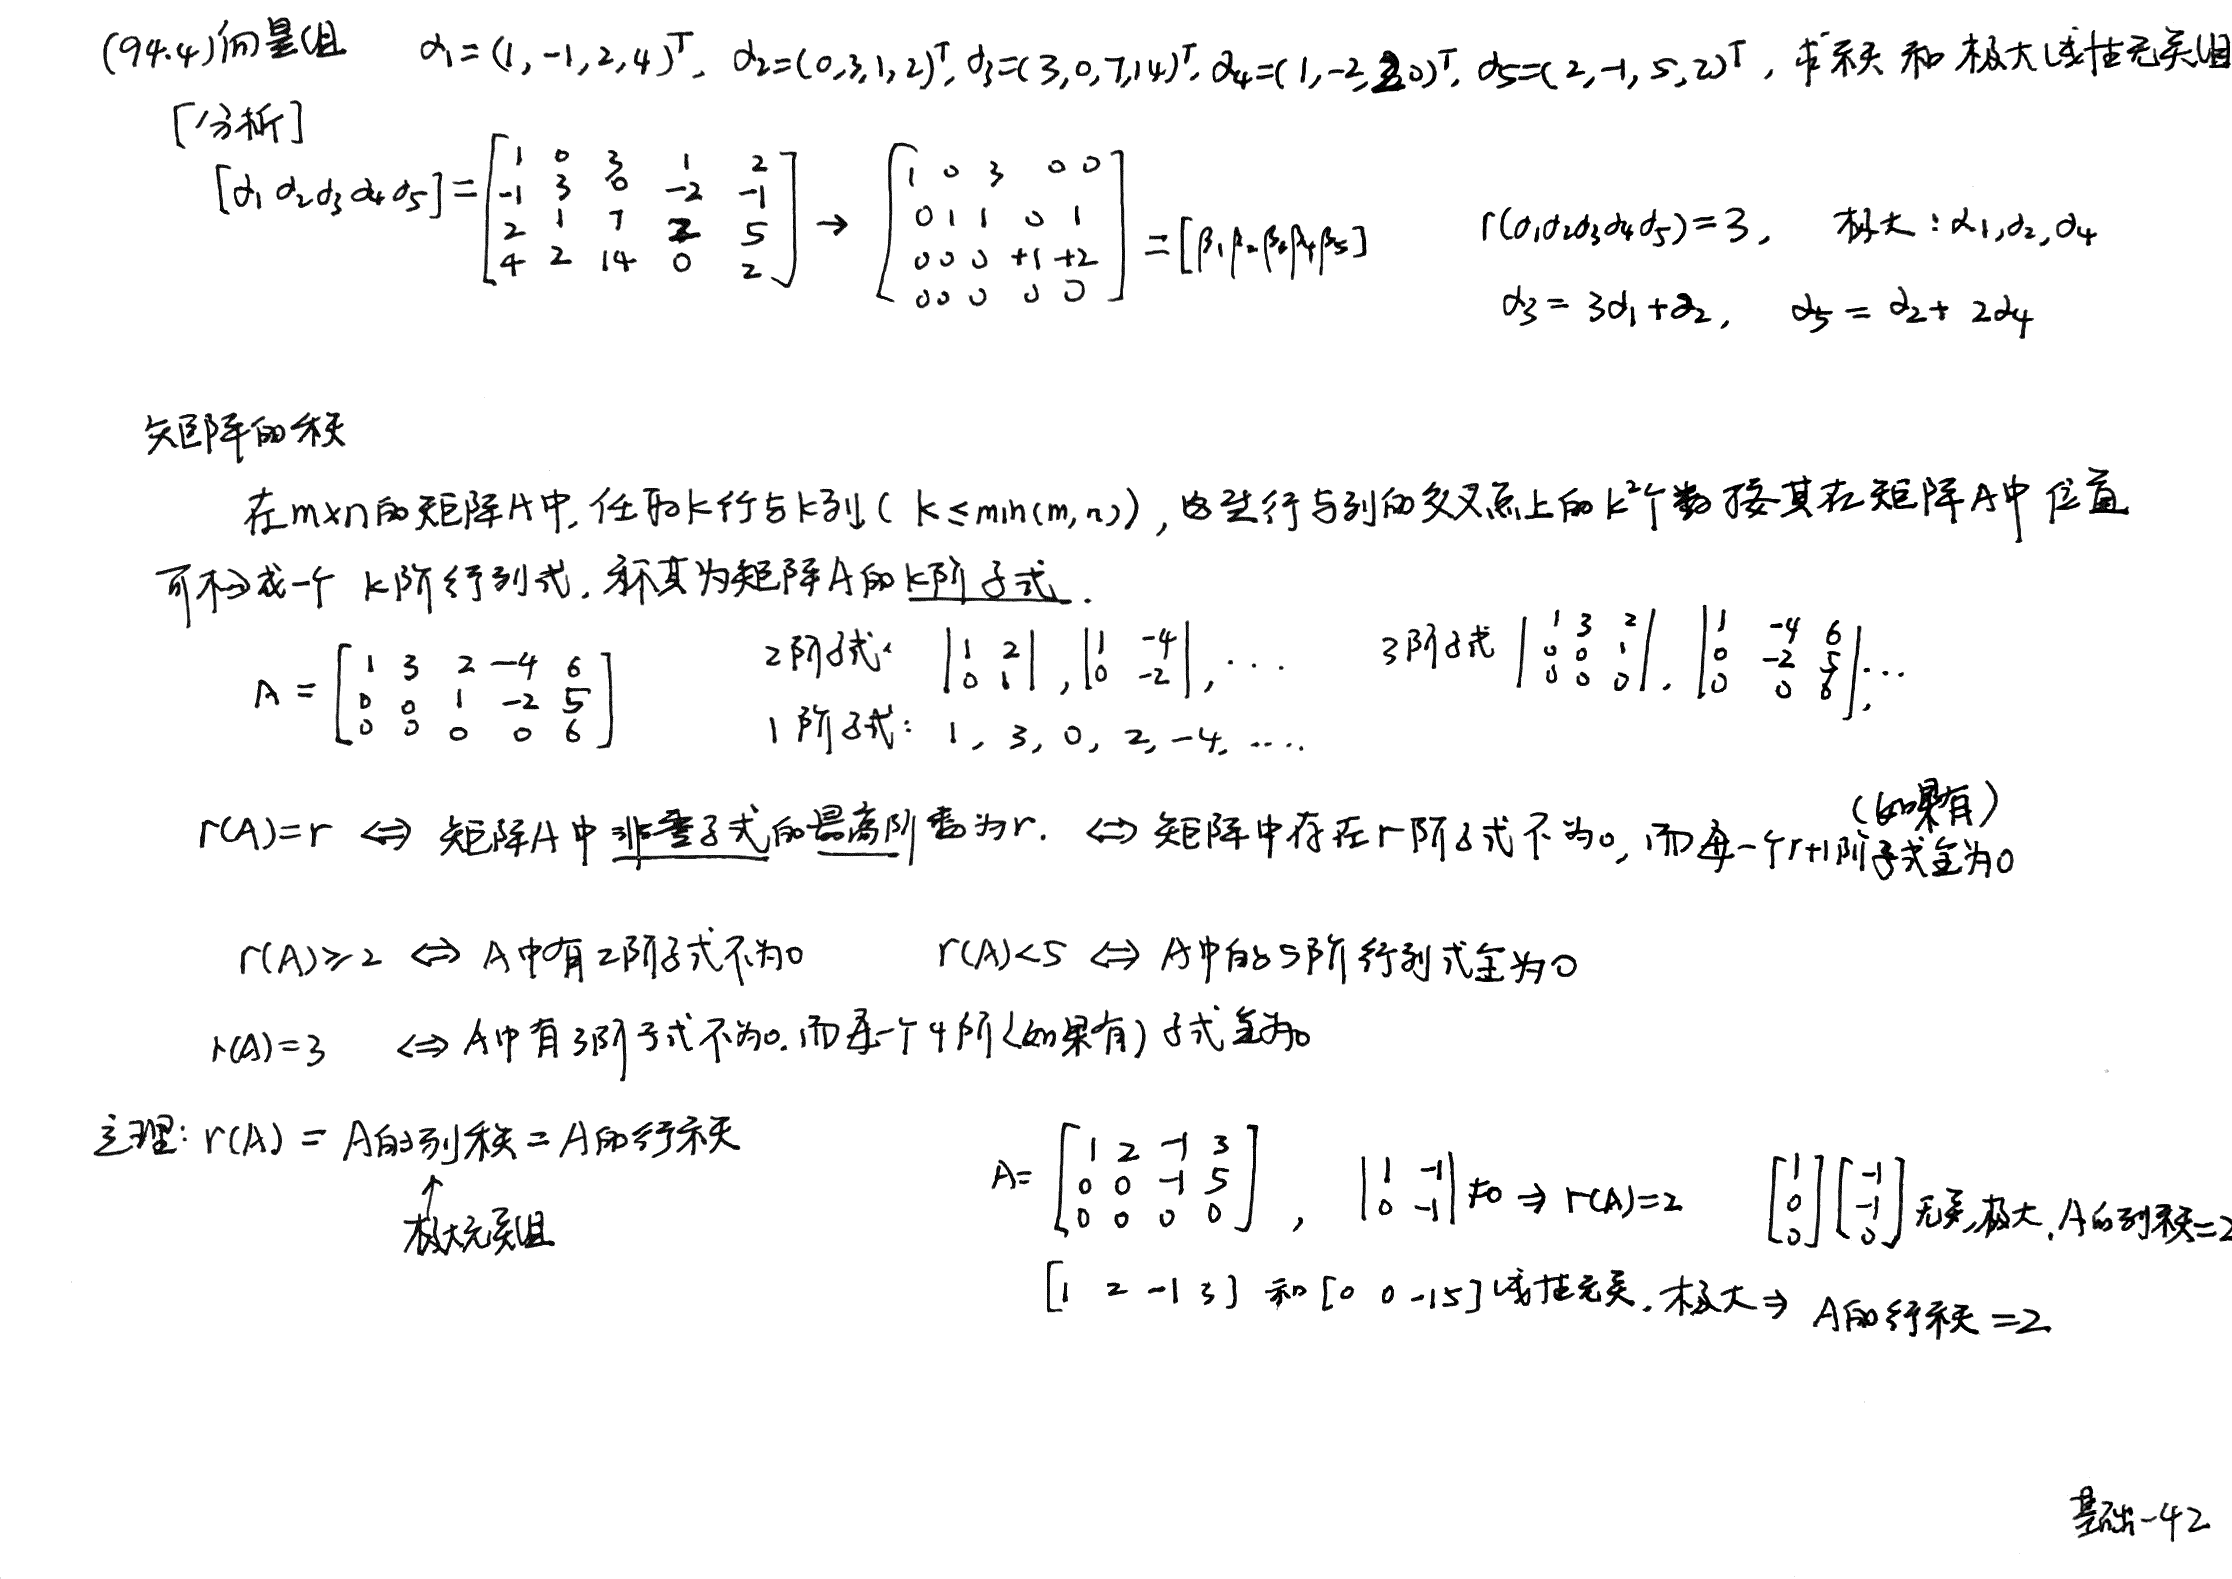 (94.4)向量组 α₁=(1,-1,2,4)ᵀ, α₂=(0,3,1,2)ᵀ, α₃=(3,0,7,14)ᵀ, α₄=(1,-2,2,0)ᵀ, α₅=(2,-1,5,2)ᵀ, 求秩和极大线性无关组
[分析]
[α₁ α₂ α₃ α₄ α₅] = [1 0 3 1 2; -1 3 0 -2 -1; 2 1 7 2 5; 4 2 14 0 2] → [1 0 3 0 0; 0 1 1 0 1; 0 0 0 +1 +2; 0 0 0 0 0] = [β₁ β₂ β₃ β₄ β₅] r(α₁α₂α₃α₄α₅)=3, 极大: α₁,α₂,α₄
α₃ = 3α₁+α₂, α₅ = α₂+2α₄
矩阵的秩
在m×n的矩阵A中,任取k行与k列(k≤min(m,n)),这些行与列的交叉点上的k²个数按其在矩阵A中位置
可构成一个k阶行列式,称其为矩阵A的k阶子式.
A = [1 3 2 -4 6; 0 0 1 -2 5; 0 0 0 0 6] 2阶子式: |1 2; 0 1|, |1 -4; 0 -2|, ... 3阶子式 |1 3 2; 0 0 1; 0 0 0|, |1 -4 6; 0 -2 5; 0 0 6|, ...
1阶子式: 1, 3, 0, 2, -4, ....
(如果有)
r(A)=r ⇔ 矩阵A中非零子式的最高阶数为r. ⇔ 矩阵中存在r阶子式不为0,而每一个r+1阶子式全为0
r(A)≥2 ⇔ A中有2阶子式不为0 r(A)<5 ⇔ A中的5阶行列式全为0
r(A)=3 ⇔ A中有3阶子式不为0,而每一个4阶(如果有)子式全为0
定理: r(A) = A的列秩 = A的行秩
↑
极大无关组
A= [1 2 -1 3; 0 0 -1 5; 0 0 0 0], |1 -1; 0 -1| ≠0 ⇒ r(A)=2 [1; 0; 0] [-1; -1; 0] 无关,极大,A的列秩=2
[1 2 -1 3] 和 [0 0 -1 5] 线性无关,极大 ⇒ A的行秩=2
基础-42